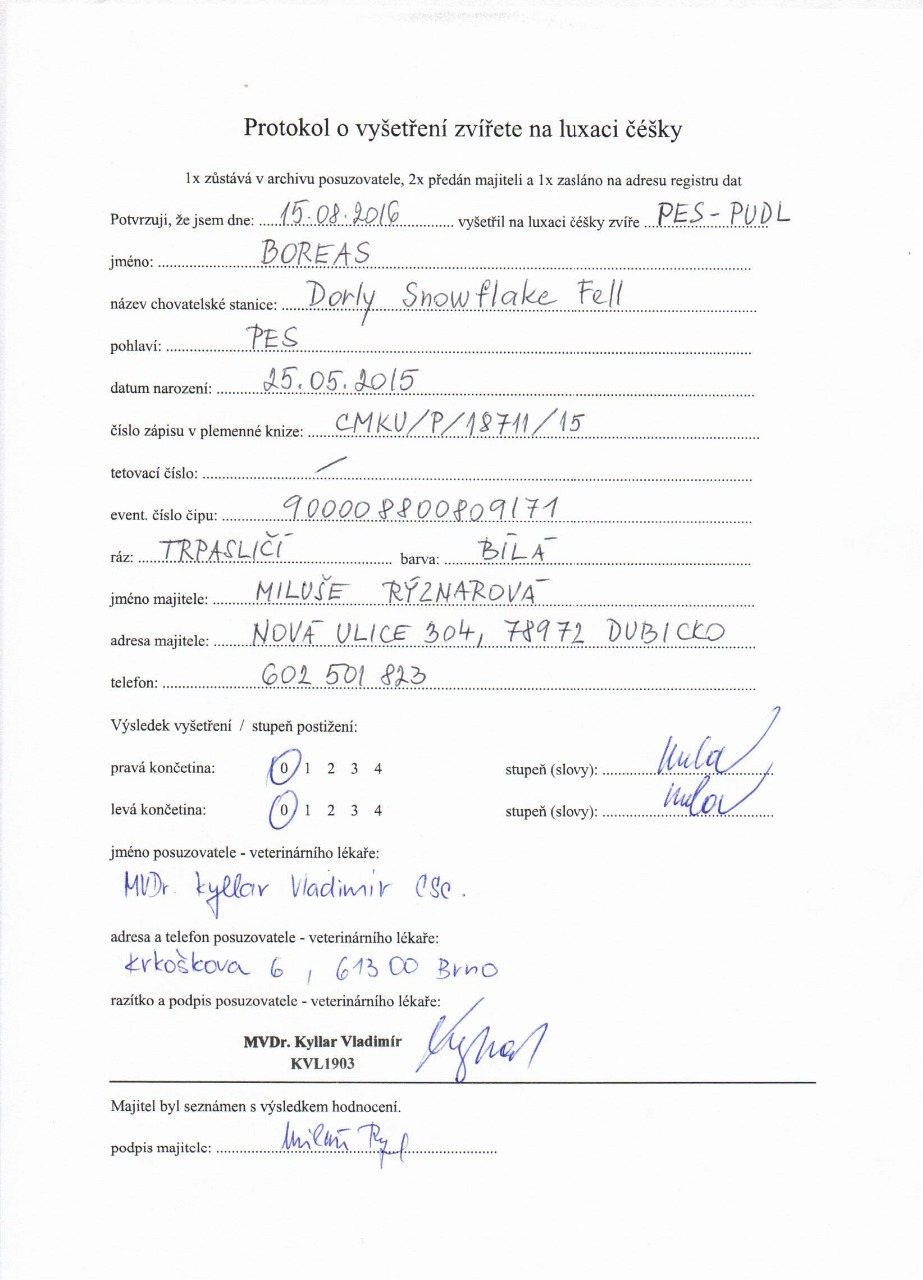 Protokol o vyšetření zvířete na luxaci čéšky
1x zůstává v archivu posuzovatele, 2x předán majiteli a 1x zasláno na adresu registru dat
Potvrzuji, že jsem dne: 15.08.2016 vyšetřil na luxaci čéšky zvíře PES-PUDL
jméno: BOREAS
název chovatelské stanice: Dorly Snowflake Fell
pohlaví: PES
datum narození: 25.05.2015
číslo zápisu v plemenné knize: CMKU/P/18711/15
tetovací číslo: /
event. číslo čipu: 900008800809171
ráz: TRPASLIČÍ barva: BÍLÁ
jméno majitele: MILUŠE RÝZNAROVÁ
adresa majitele: NOVÁ ULICE 304, 78972 DUBICKO
telefon: 602 501 823
Výsledek vyšetření / stupeň postižení:
pravá končetina: 0 1 2 3 4 stupeň (slovy): nula
levá končetina: 0 1 2 3 4 stupeň (slovy): nula
jméno posuzovatele - veterinárního lékaře:
MVDr. Kyllar Vladimír CSc.
adresa a telefon posuzovatele - veterinárního lékaře:
Krkoškova 6, 613 00 Brno
razítko a podpis posuzovatele - veterinárního lékaře:
MVDr. Kyllar Vladimír
KVL1903
Majitel byl seznámen s výsledkem hodnocení.
podpis majitele: